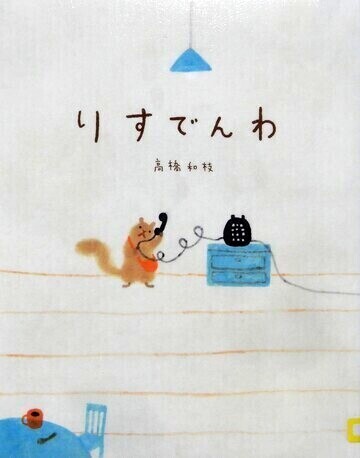 りすでんわ
高橋和枝